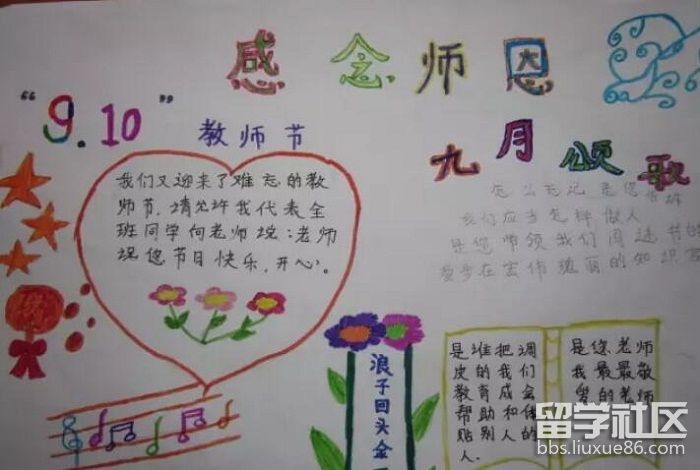 感念师恩
“9.10”
教师节
九月颂歌
我们又迎来了难忘的教
师节,请允许我代表全
班同学向老师说:老师
祝您节日快乐,开心。
怎么忘记 是您告诉
我们应当怎样做人
是您带领我们周游书的
漫步在宏伟瑰丽的知识宫
浪子回头金
是谁把调
皮的我们
教育成会
帮助和体
贴别人的
人.
是您,老师
我最最敬
爱的老师
留学社区
bbs.liuxue86.com